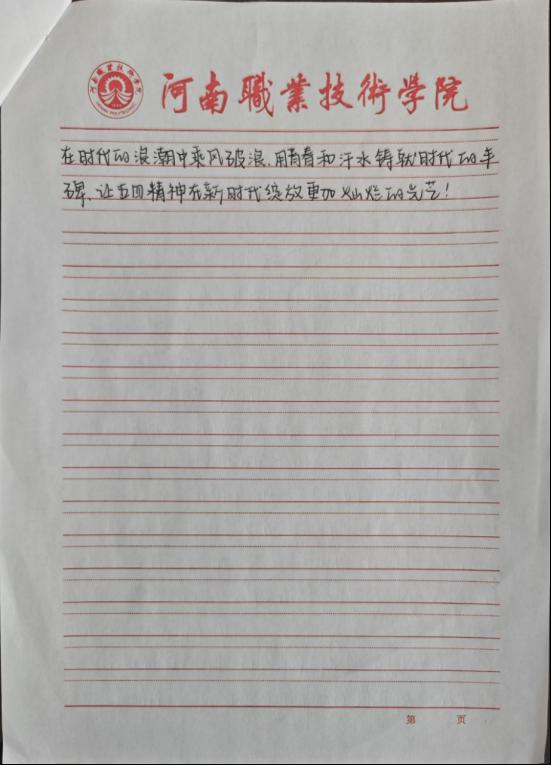 河南職業技術學院
在时代的浪潮中乘风破浪，用青春和汗水铸就时代的丰
碑，让五四精神在新时代绽放更加灿烂的光芒！
第 页